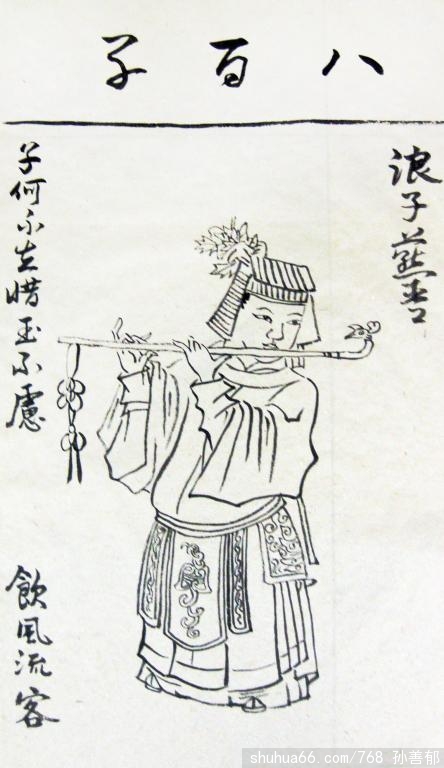 八百子
浪子燕青
子何不去惜主不慮
飲風流客
shuhua66.com/768 孙善郁